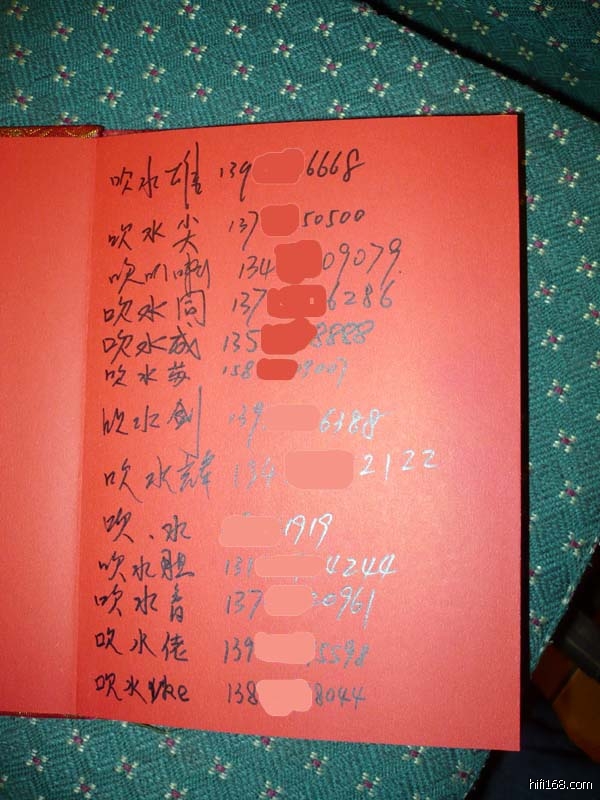 吹水雄 139 6668
吹水尖 137 50500
吹 134 09079
吹水同 137 6286
吹水成 135 8888
吹水苏 158
吹水剑 139 6388
吹水 134 2122
吹、水 1919
吹水胆 4244
吹水音 137 0961
吹水佬 139 5598
吹水 138 8044
hifi168.com